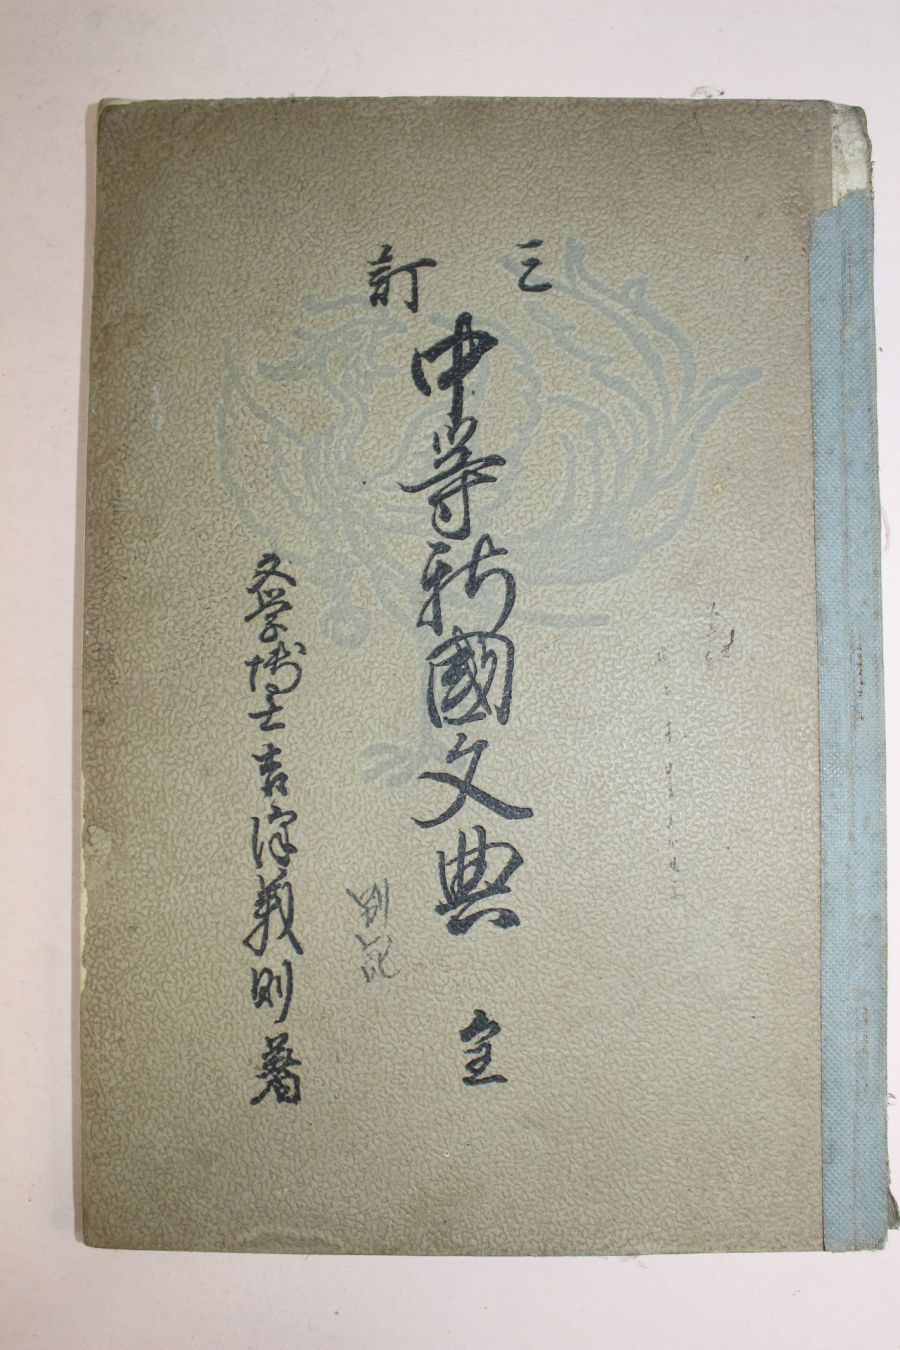 三訂
中等新國文典 全
文学博士吉澤義則著